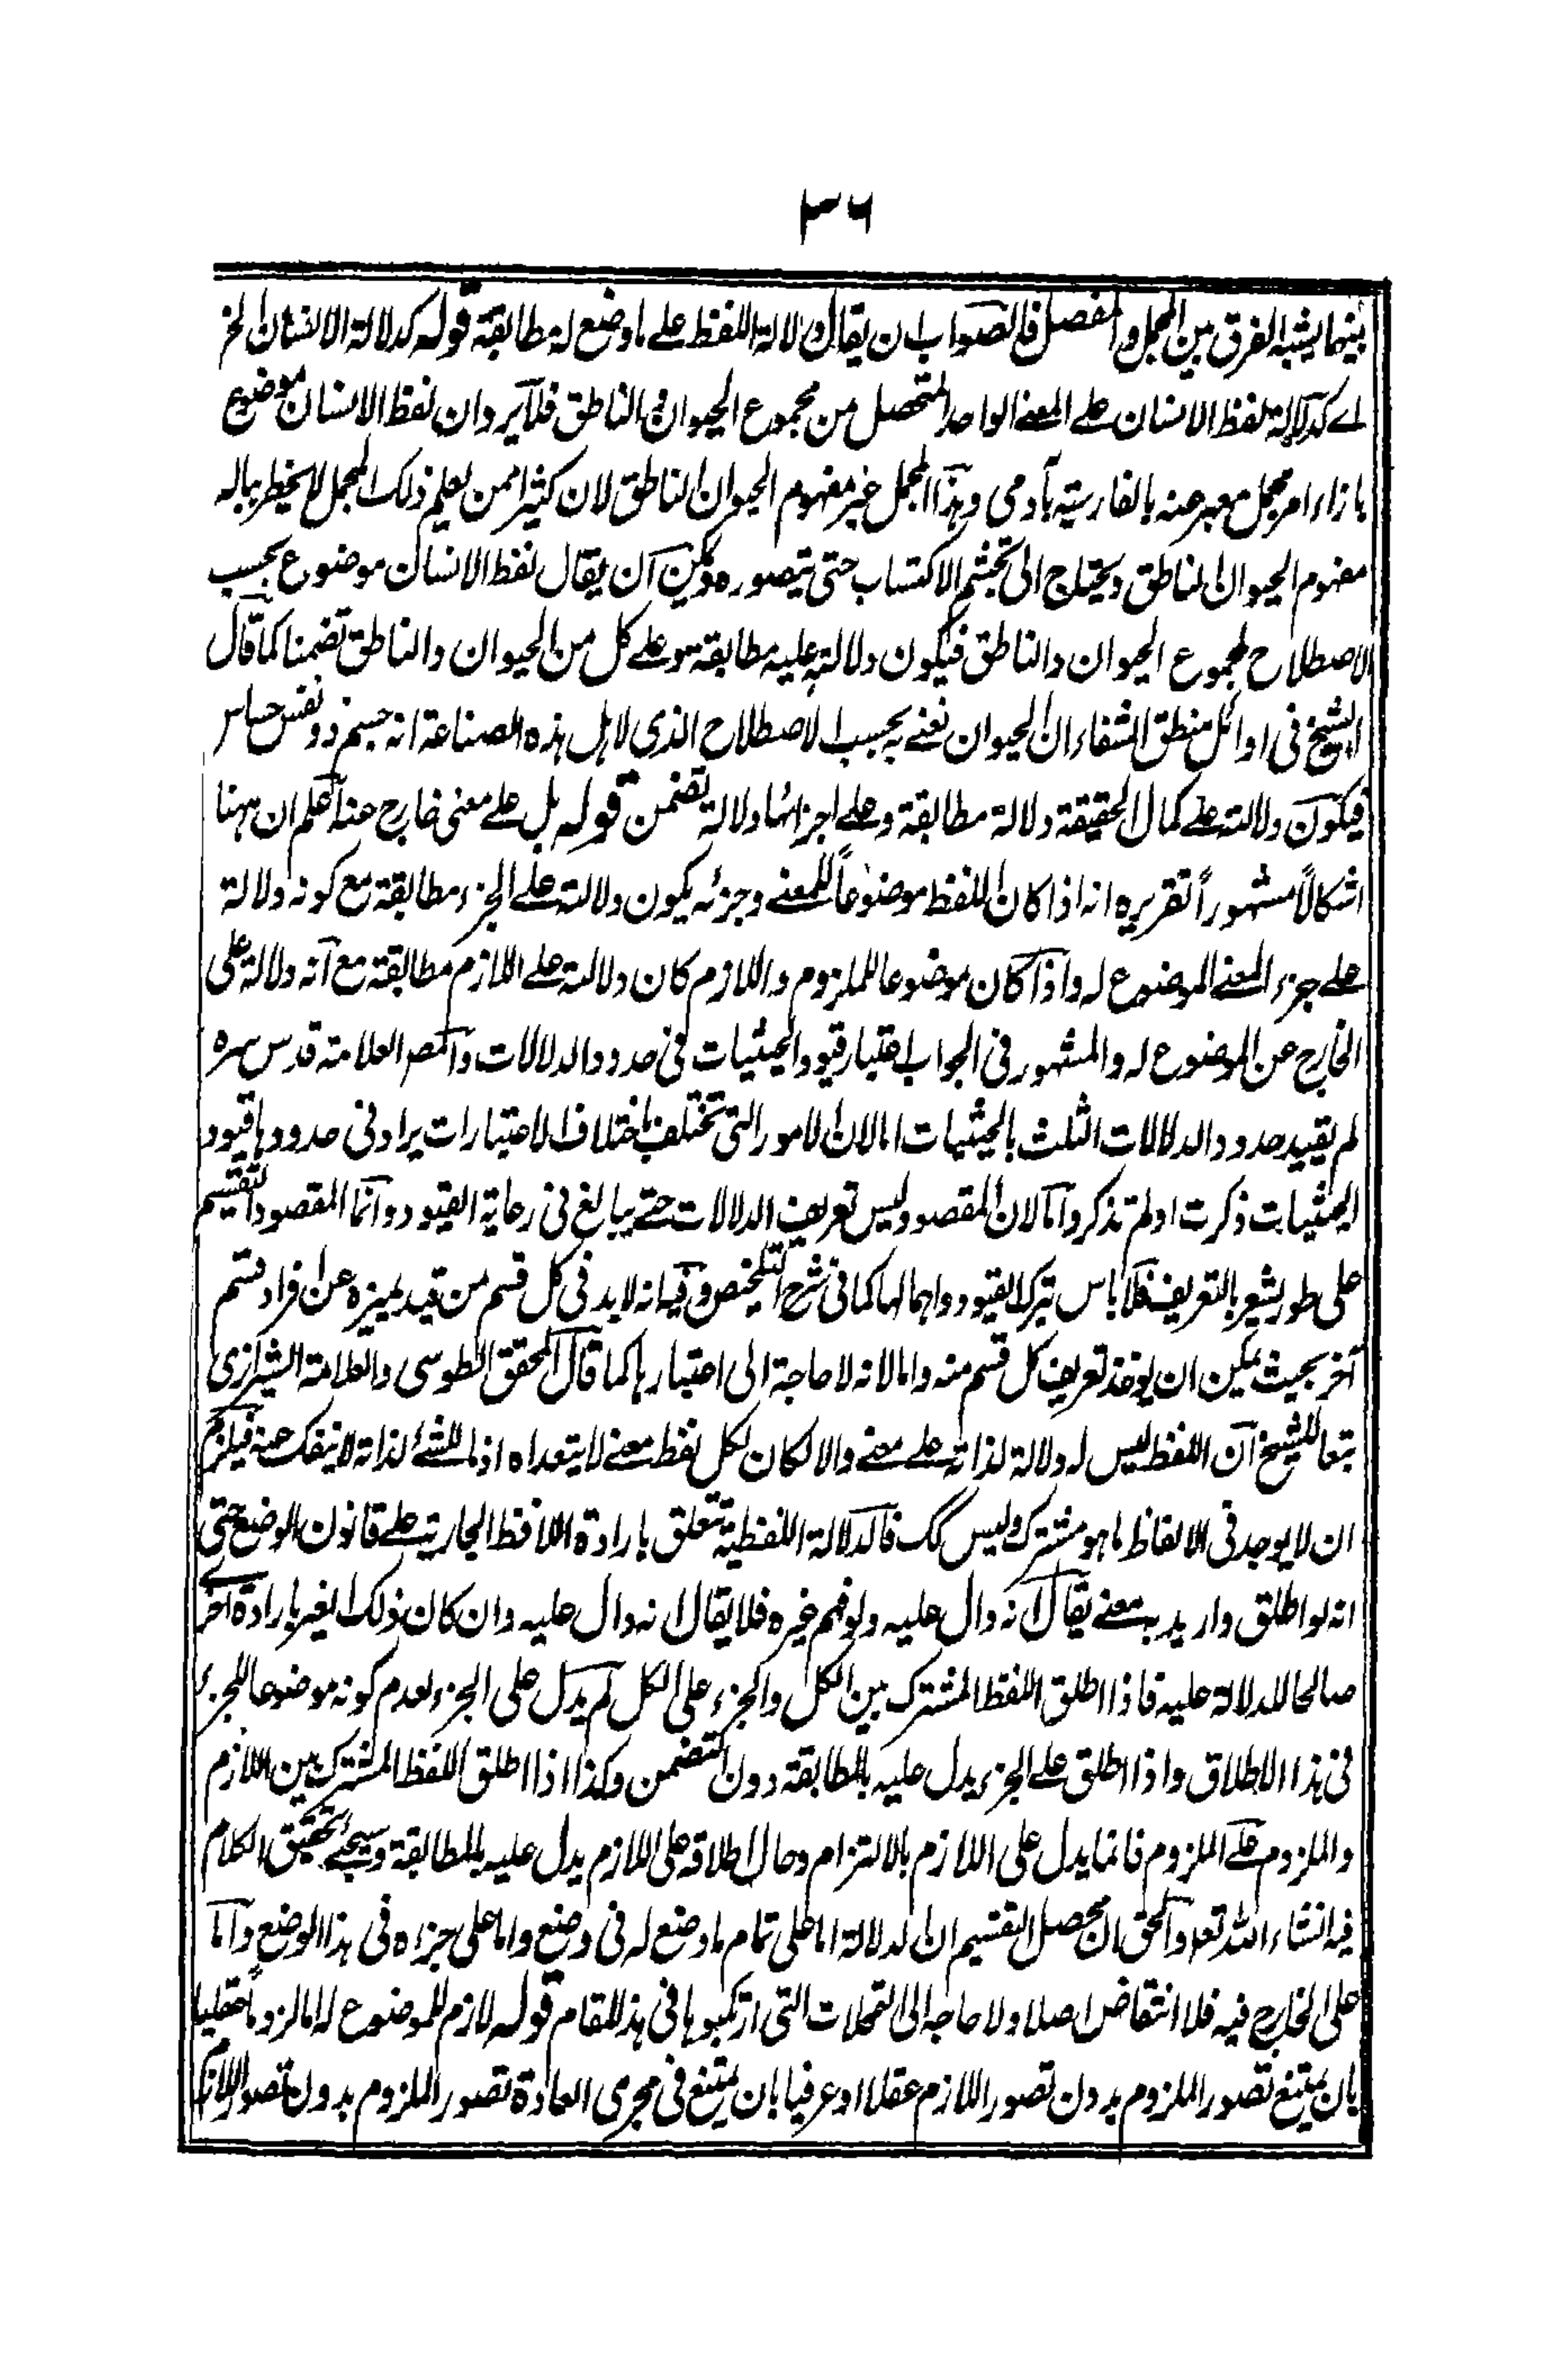 ٣٦
بينهما يشبه الفرق بين المجمل والمفصل فالصواب ان يقال دلالة اللفظ على ما وضع له مطابقة قوله كدلالة الانسان الخ
اے كدلالة لفظ الانسان على المعنى الواحد المتحصل من مجموع الحيوان والناطق فلا يرد ان لفظ الانسان موضوع
بازاء امر مجمل معبر عنه بالفارسية بآدمی وهذا المجمل غير مفهوم الحيوان الناطق لان كثيرا ممن يعلم ذلك المجمل لا يخطر بباله
مفهوم الحيوان الناطق ويحتاج الى تجشم الاكتساب حتى يتصوره ويمكن ان يقال لفظ الانسان موضوع بحسب
الاصطلاح لمجموع الحيوان والناطق فيكون دلالته عليه مطابقة وعلى كل من الحيوان والناطق تضمنا كما قال
الشيخ فى اوائل منطق الشفاء ان الحيوان نعنى به بحسب الاصطلاح الذى لاهل هذه الصناعة انه جسم ذو نفس حساس
فيكون دلالته على كمال الحقيقة دلالة مطابقة وعلى اجزائها دلالة تضمن قوله بل على معنى خارج عنه اعلم ان ههنا
اشكالاً مشهوراً تقريره انه اذا كان اللفظ موضوعاً للمعنى وجزئه يكون دلالته على الجزء مطابقة مع كونه دلالة
على جزء المعنى الموضوع له واذا كان موضوعا للملزوم واللازم كان دلالته على اللازم مطابقة مع انه دلالة على
الخارج عن الموضوع له والمشهور فى الجواب اعتبار قيود الحيثيات فى حدود الدلالات والمصر العلامة قدس سره
لم يقيد حدود الدلالات الثلث بالحيثيات اما لان الامور التى تختلف باختلاف الاعتبارات يراد فى حدودها قيود
الحيثيات ذكرت او لم تذكر واما لان المقصود ليس تعريف الدلالات حتى يبالغ فى رعاية القيود وانما المقصود التقسيم
على طور يشعر بالتعريف فلا باس بترك القيود واهمالها كما فى شرح التلخيص وفيه انه لا بد فى كل قسم من قيد يميزه عن افراد قسم
آخر بحيث يمكن ان يوخذ تعريف كل قسم منه واما لانه لا حاجة الى اعتبارها كما قال المحقق الطوسى والعلامة الشيرازى
تبعا للشيخ ان اللفظ ليس له دلالة لذاته على معنى والا لكان لكل لفظ معنى لا يتعداه اذ ما للشئ لذاته لا ينفك عنه فيلزم
ان لا يوجد فى الالفاظ ما هو مشترك وليس كك فالدلالة اللفظية تتعلق بارادة اللافظ الجارية على قانون الوضع حتى
انه لو اطلق واريد به معنى يقال انه دال عليه ولو فهم غيره فلا يقال انه دال عليه وان كان ذلك الغير بارادة اخرى
صالحا للدلالة عليه فاذا اطلق اللفظ المشترك بين الكل والجزء على الكل لم يدل على الجزء لعدم كونه موضوعا للجزء
فى هذا الاطلاق واذا اطلق على الجزء يدل عليه بالمطابقة دون التضمن وكذا اذا اطلق اللفظ المشترك بين اللازم
والملزوم على الملزوم فانما يدل على اللازم بالالتزام وحال اطلاقه على اللازم يدل عليه بالمطابقة وسيجئ تحقيق الكلام
فيه انشاء الله تعو والحق ان محصل التقسيم ان الدلالة اما على تمام ما وضع له فى وضع واما على جزءه فى هذا الوضع واما
على الخارج فيه فلا انتقاض اصلا ولا حاجة الى التمحلات التى ارتكبوها فى هذا المقام قوله لازم للموضوع له اما لزوماً عقليا
بان يمتنع تصور الملزوم بدون تصور اللازم عقلا او عرفيا بان يمتنع فى مجرى العادة تصور الملزوم بدون تصور اللازم